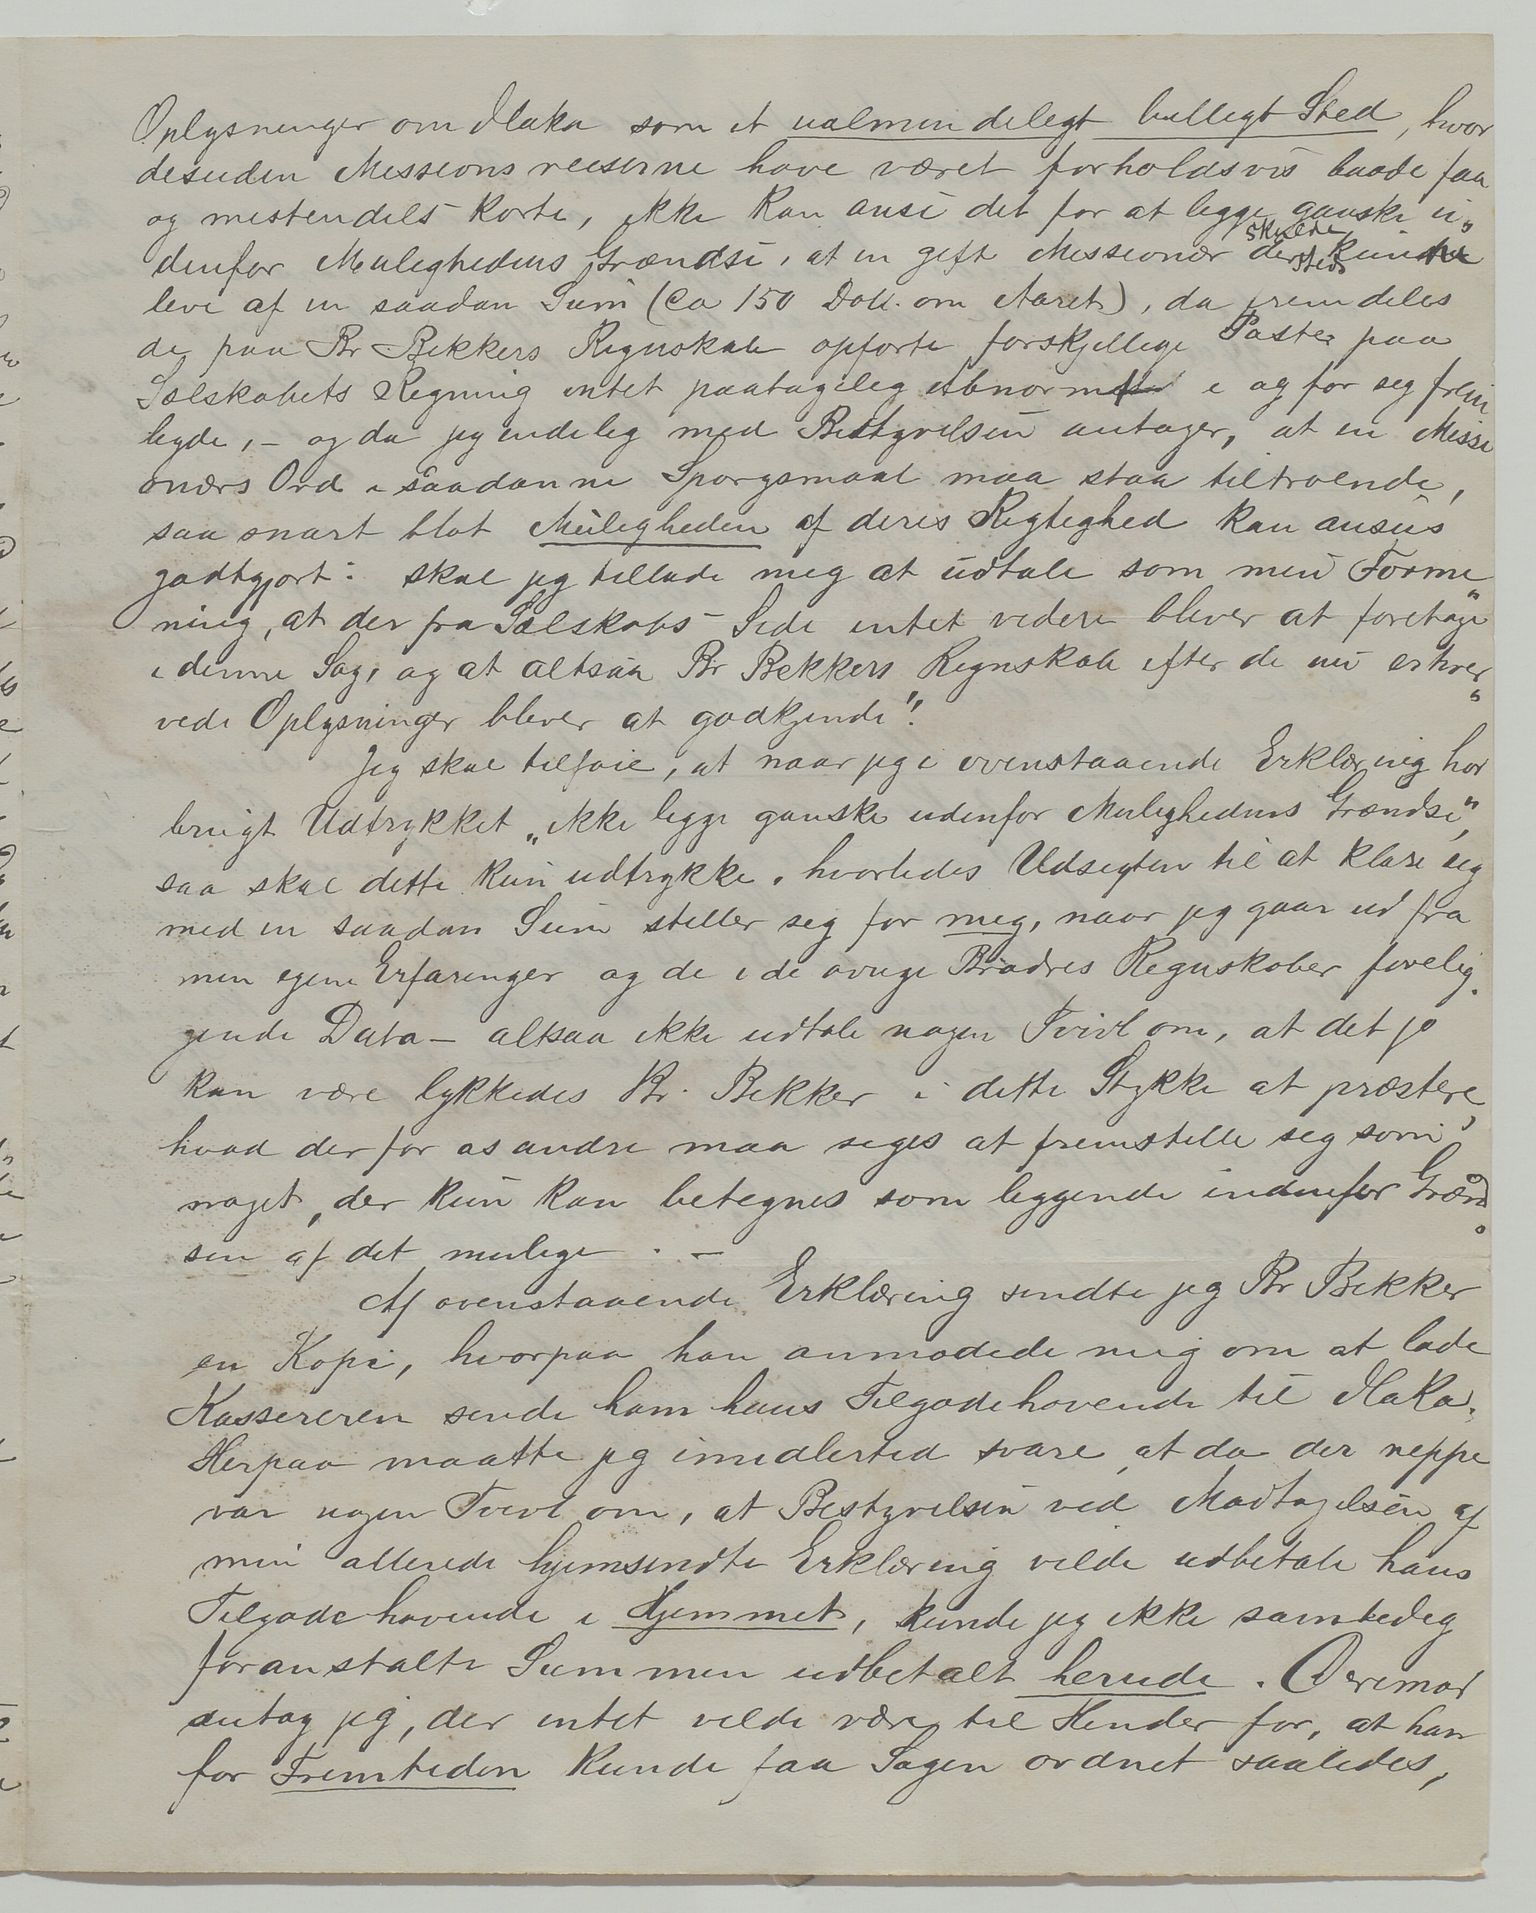 Oplysninger om Ilaka som et ualmindeligt billigt Sted, hvor
desuden Missionsreiserne have været forholdsvis baade faa
og mestendels korte, ikke kan anse det for at ligge ganske u„
denfor Mulighedens Grændse, at en gift Missionær dersteds skulde kunne
leve af en saadan Sum (Ca 150 Doll. om Aaret), da fremdeles
de paa Br Bekkers Regnskab opførte forskjellige Poster paa
Selskabets Regning intet paatagelig Abnormt i og for sig frem
byde, – og da jeg endelig med Bestyrelsen antager, at en Missi
onærs Ord i saadanne Spørgsmaal maa staa til troende,
saa snart blot Muligheden af deres Rigtighed kan ansees
godtgjort: skal jeg tillade mig at udtale som min Forme„
ning, at der fra Selskabs Side intet videre bliver at foretage
i denne Sag, og at altsaa Br Bekkers Regnskab efter de nu erhver„
vede Oplysninger bliver at godkjende".
Jeg skal tilføie, at naar jeg i ovenstaaende Erklæring har
brugt Udtrykket „ikke ligge ganske udenfor Mulighedens Grændse",
saa skal dette kun udtrykke, hvorledes Udsigten til at klare sig
med en saadan Sum stiller sig for mig, naar jeg gaar ud fra
min egen Erfaringer og de i de øvrige Brødres Regnskaber forelig„
gende Data – altsaa ikke udtale nogen Tvivl om, at det jo
kan være lykkedes Br. Bekker i dette Stykke at præstere,
hvad der for os andre maa siges at fremstille sig som
noget, der kun kan betegnes som liggende indenfor Grænd„
sen af det mulige. –
Af ovenstaaende Erklæring sendte jeg Br Bekker
en Kopi, hvorpaa han anmodede mig om at lade
Kassereren sende ham hans Tilgodehavende til Ilaka.
Herpaa maatte jeg imidlertid svare, at da der neppe
var nogen Tvivl om, at Bestyrelsen ved Modtagelsen af
min allerede hjemsendte Erklæring vilde udbetale hans
Tilgodehavende i Hjemmet, kunde jeg ikke samtidig
foranstalte Summen udbetalt herude. Derimod
antog jeg, der intet vilde være til Hinder for, at han
for Fremtiden kunde faa Sagen ordnet saaledes,